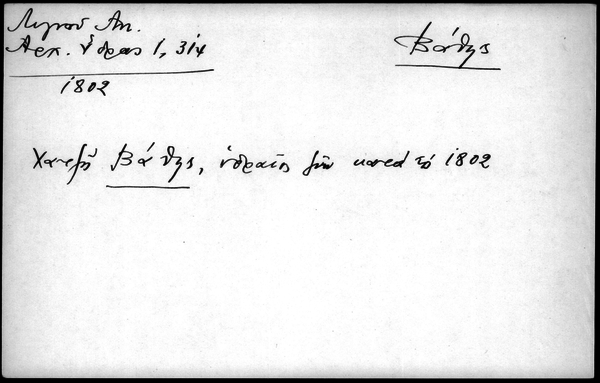 Λιγνού Αν.
Αρχ. Ύδρας 1, 314
1802
Βάθης
Βάθης, υδραίος ζων κατά το 1802